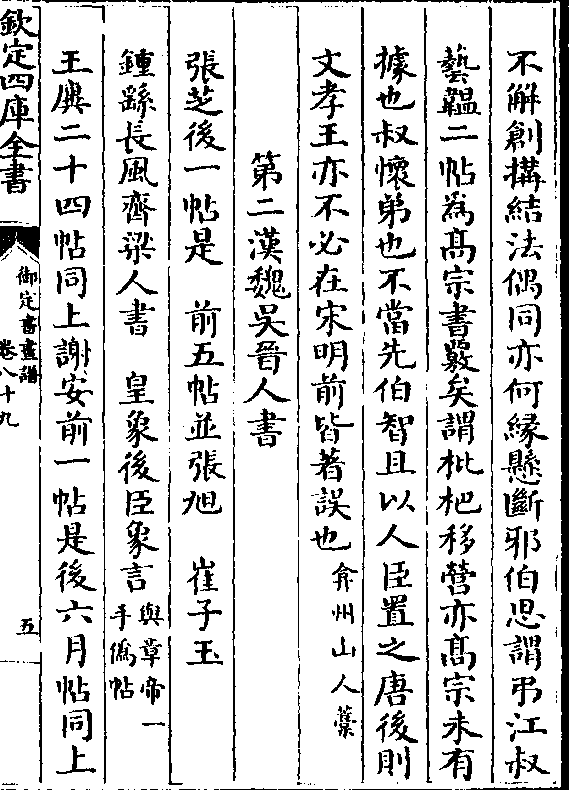 不解創搆結法偶同亦何縁懸斷邪伯思謂弔江叔
藝韞二帖為髙宗書覈矣謂枇杷移營亦髙宗未有
據也叔懷弟也不當先伯智且以人臣置之唐後則
文孝王亦不必在宋明前皆著誤也弇州山人藁
第二漢魏吳晉人書
張芝後一帖是 前五帖並張旭 崔子玉
鍾繇長風齊梁人書 皇象後臣象言與章帝一手偽帖
王廙二十四帖同上謝安前一帖是後六月帖同上
欽定四庫全書
御定書畫譜
卷八十九
五